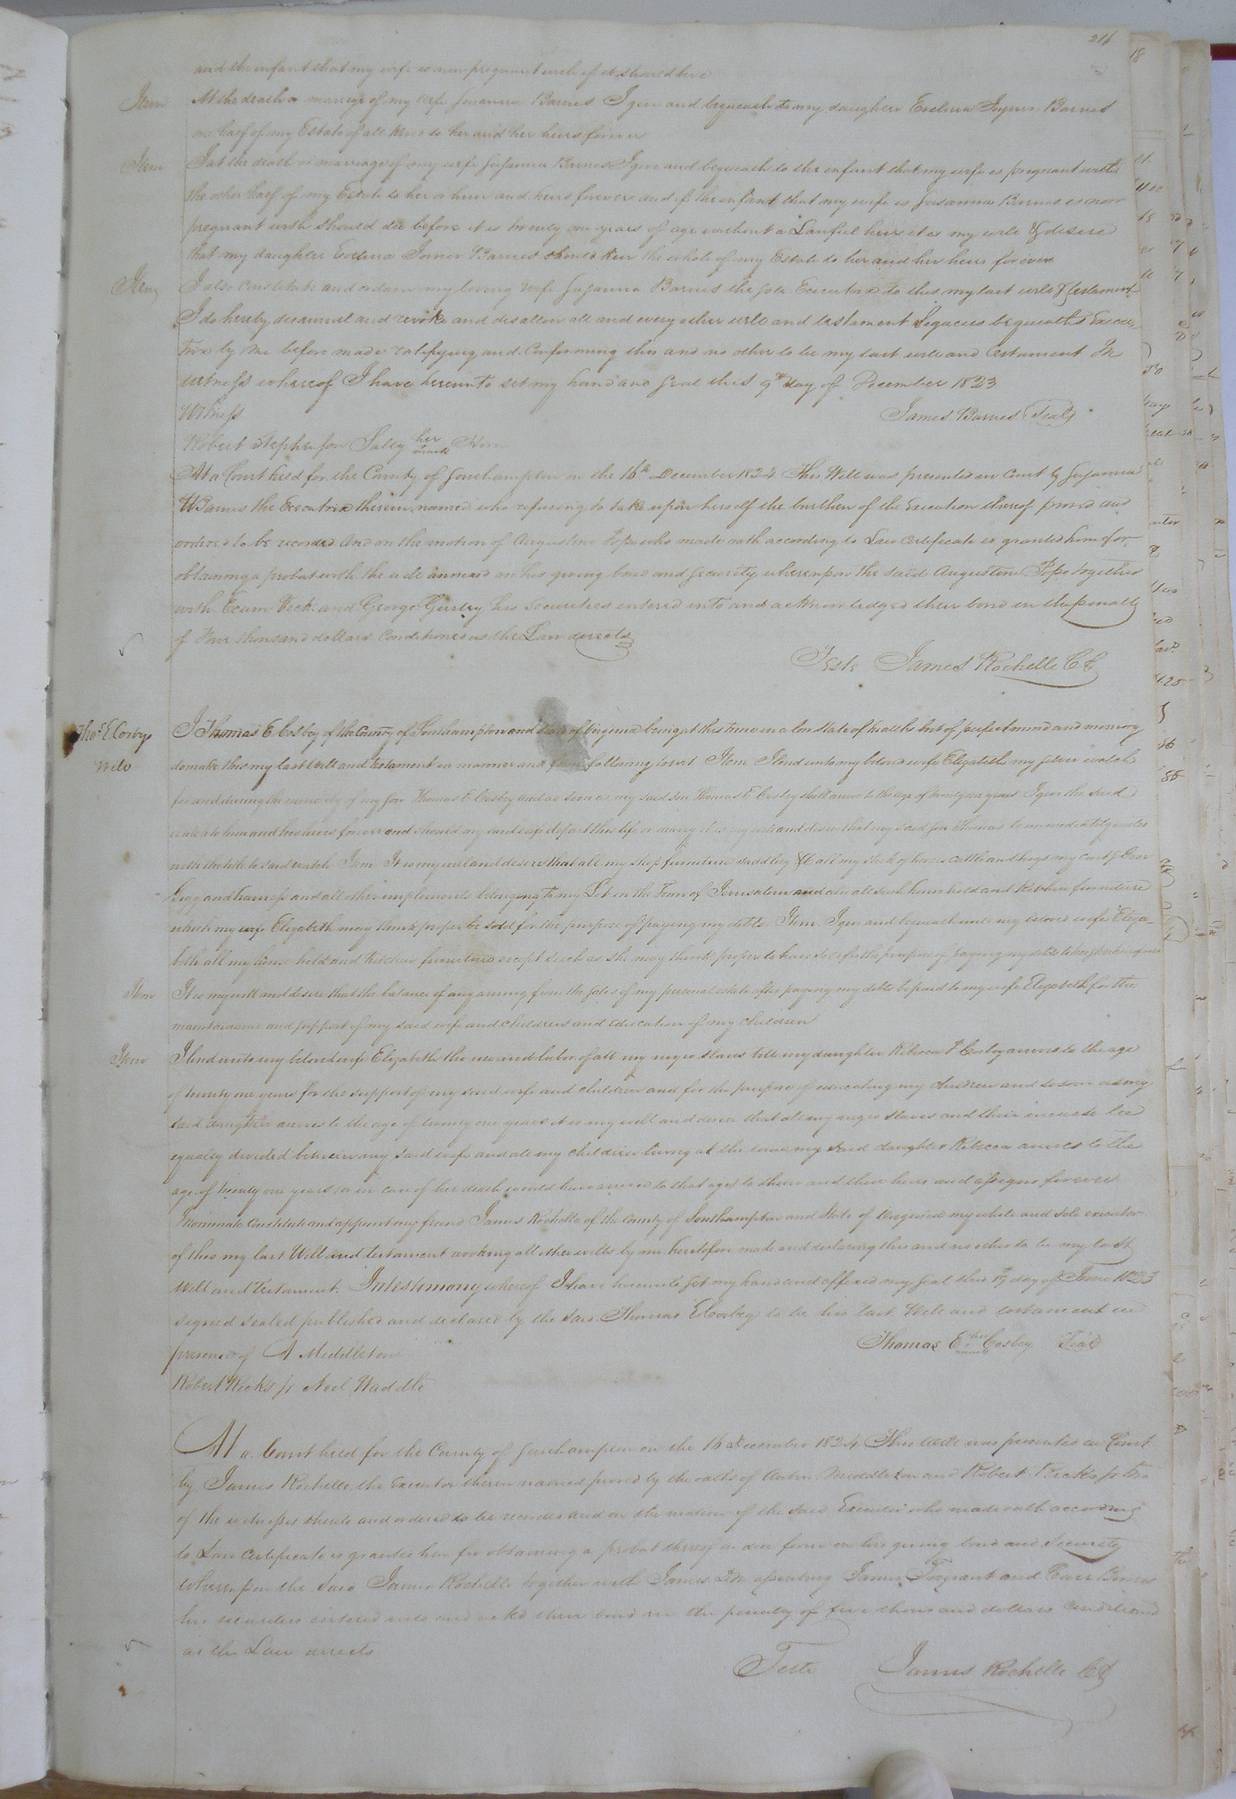 216
and the infant that my wife is now pregnant with if it should live
Item At the death or marriage of my wife Susanna Barnes I give and bequeath to my daughter Evelina Barnes
one half of my Estate of all kind to her and her heirs forever
Item I at the death or marriage of my wife Susanna Barnes I give and bequeath to the infant that my wife is pregnant with
the other half of my Estate to her or him and heirs forever and if the infant that my wife is Susanna Barnes is now
pregnant with should die before it is twenty one years of age without a Lawful heir it is my will & desire
that my daughter Evelina Barnes should have the whole of my Estate to her and her heirs forever
Item I also Constitute and ordain my loving wife Susanna Barnes the sole Executrix to this my last will & testament
I do hereby disannul and revoke and disallow all and every other will and testament Legacies bequeathed Execu-
trix by me before made ratifying and Conforming this and no other to be my last will and testament In
witness whereof I have hereunto set my hand and seal this 9th day of December 1823
Witness James Barnes Seal
Robert Stephenson Sally her mark
At a Court held for the County of Southampton on the 16th December 1824 This Will was presented in Court by Susanna
Barnes the Executrix therein named who refusing to take upon herself the burthen of the Execution thereof proved and
ordered to be recorded And on the motion of Augustine Pope who made oath according to Law certificate is granted him for
obtaining a probat with the will annexed on his giving bond and security whereupon the said Augustine Pope together
with and George Gurley his Securities entered into and acknowledged their bond in the penalty
of four thousand dollars Conditioned as the Law directs
Teste James Rochelle CC
Thos E Cosby
Will
I Thomas E Cosby of the County of Southampton and State of Virginia being at this time in a low State of health but of perfect mind and memory
do make this my last Will and testament in manner and form following to wit Item I lend unto my beloved wife Elizabeth my silver watch
for and during the minority of my son Thomas E Cosby and as soon as my said son Thomas E Cosby shall arrive to the age of twenty one years I give the said
watch to him and his heirs forever and should my said wife depart this life or marry it is my will and desire that my said son Thomas be immediately
with the title to said watch Item It is my will and desire that all my shop furniture saddlery & all my stock of horses cattle and hogs my cart &
Gigg and harness and all other implements belonging to my Lot in the Town of Jerusalem and also all such household and kitchen furniture
which my wife Elizabeth may think proper be sold for the purpose of paying my debts Item I give and bequeath unto my beloved wife Eliza-
beth all my house hold and kitchen furniture except such as she may think proper to have sold for the purpose of paying my debts
Item It is my will and desire that the balance if any arising from the sales of my personal estate after paying my debts be paid to my wife Elizabeth for the
maintainance and support of my said wife and children and education of my children
Item I lend unto my beloved wife Elizabeth the use and labor of all my negro slaves till my daughter Rebecca Cosby arrives to the age
of twenty one years for the support of my said wife and children and for the purpose of educating my children and so soon as my
said daughter arrives to the age of twenty one years it is my will and desire that all my negro slaves and their increase be
equally divided between my said wife and all my children living at the time my said daughter Rebecca arrives to the
age of twenty one years or in case of her death would have arrived to that age to them and their heirs and assigns forever
I nominate Constitute and appoint my friend James Rochelle of the county of Southampton and State of Virginia my whole and sole executor
of this my last Will and testament revoking all other wills by me heretofore made and declaring this and no other to be my last
will and testament. In testimony whereof I have hereunto set my hand and affixed my seal this day of June 1823
Signed sealed published and declared by the said Thomas E Cosby to be his last Will and testament in Thomas E his mark Cosby Seal
presence of A Middleton
Robert Ricks jr Noel Waddle
At a Court held for the County of Southampton on the 16 December 1824 This Will was presented in Court
by James Rochelle the Executor therein named proved by the oaths of Middleton and Robert Ricks jr two
of the witnesses thereto and ordered to be recorded and on the motion of the said Executor who made oath according
to Law certificate is granted him for obtaining a probat thereof in due form on his giving bond and security
Whereupon the said James Rochelle together with James James Trezvant and Carr Bowers
his securities entered into and ackd their bond in the penalty of five thousand dollars conditioned
as the Law directs
Teste James Rochelle CC